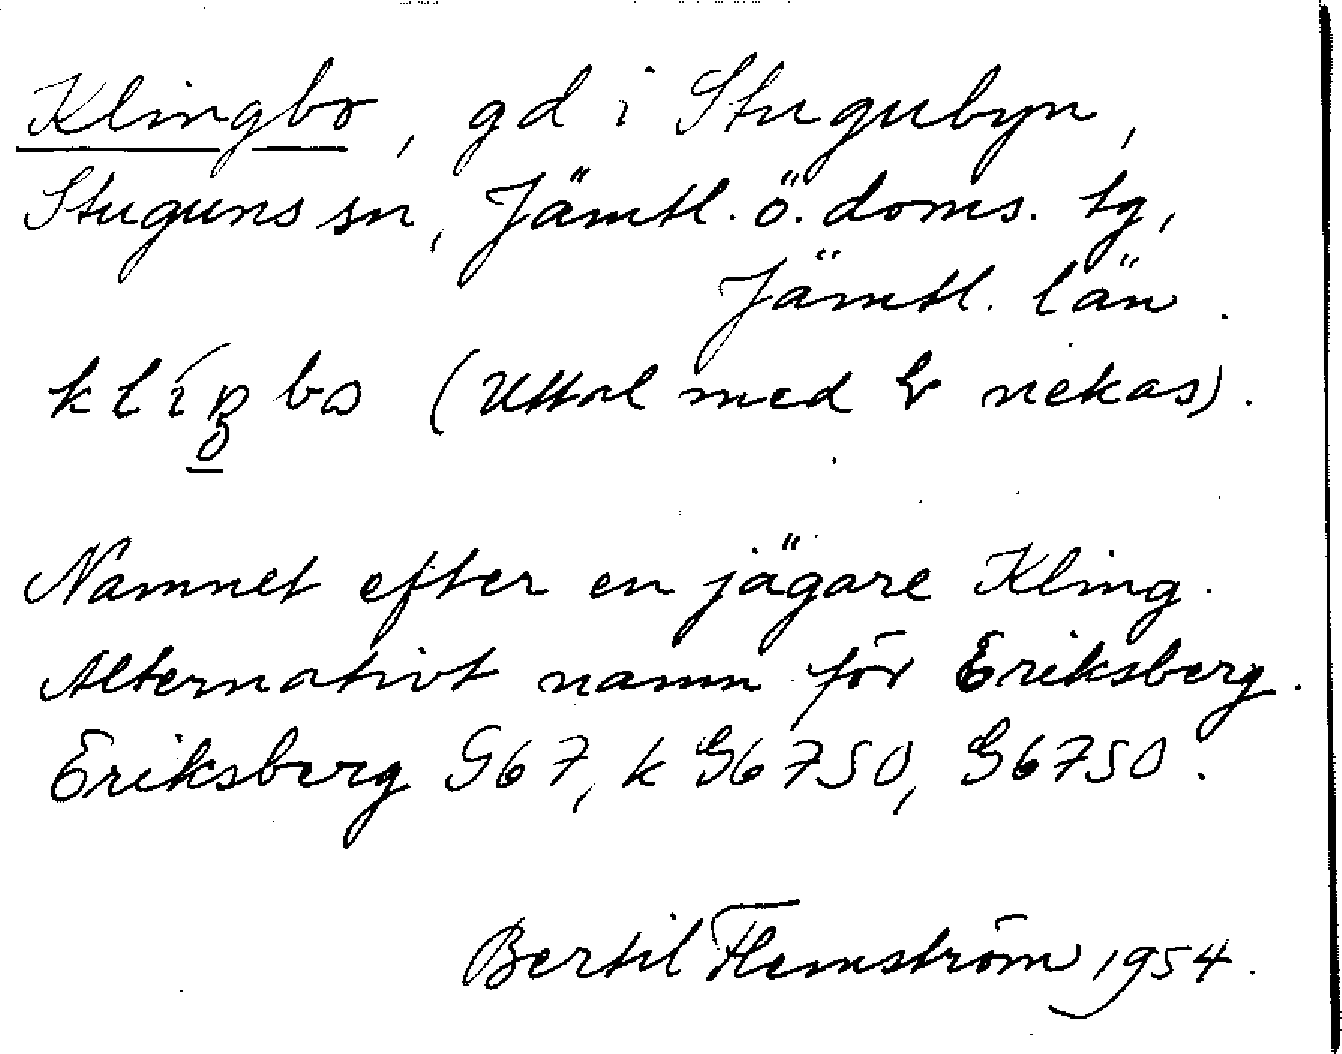 Klingbo, gd i Stugubyn,
Stuguns sn, Jämtl. ö. doms. tg,
Jämtl. län.
(Uttal med nekas).
Namnet efter en jägare Kling.
Alternativt namn för Eriksberg.
Eriksberg G67, k G6750, G6750.
Bertil Flemström 1954.